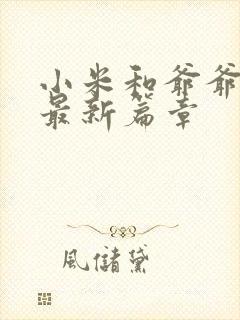 小米和爷爷
最新篇章
風儲黛